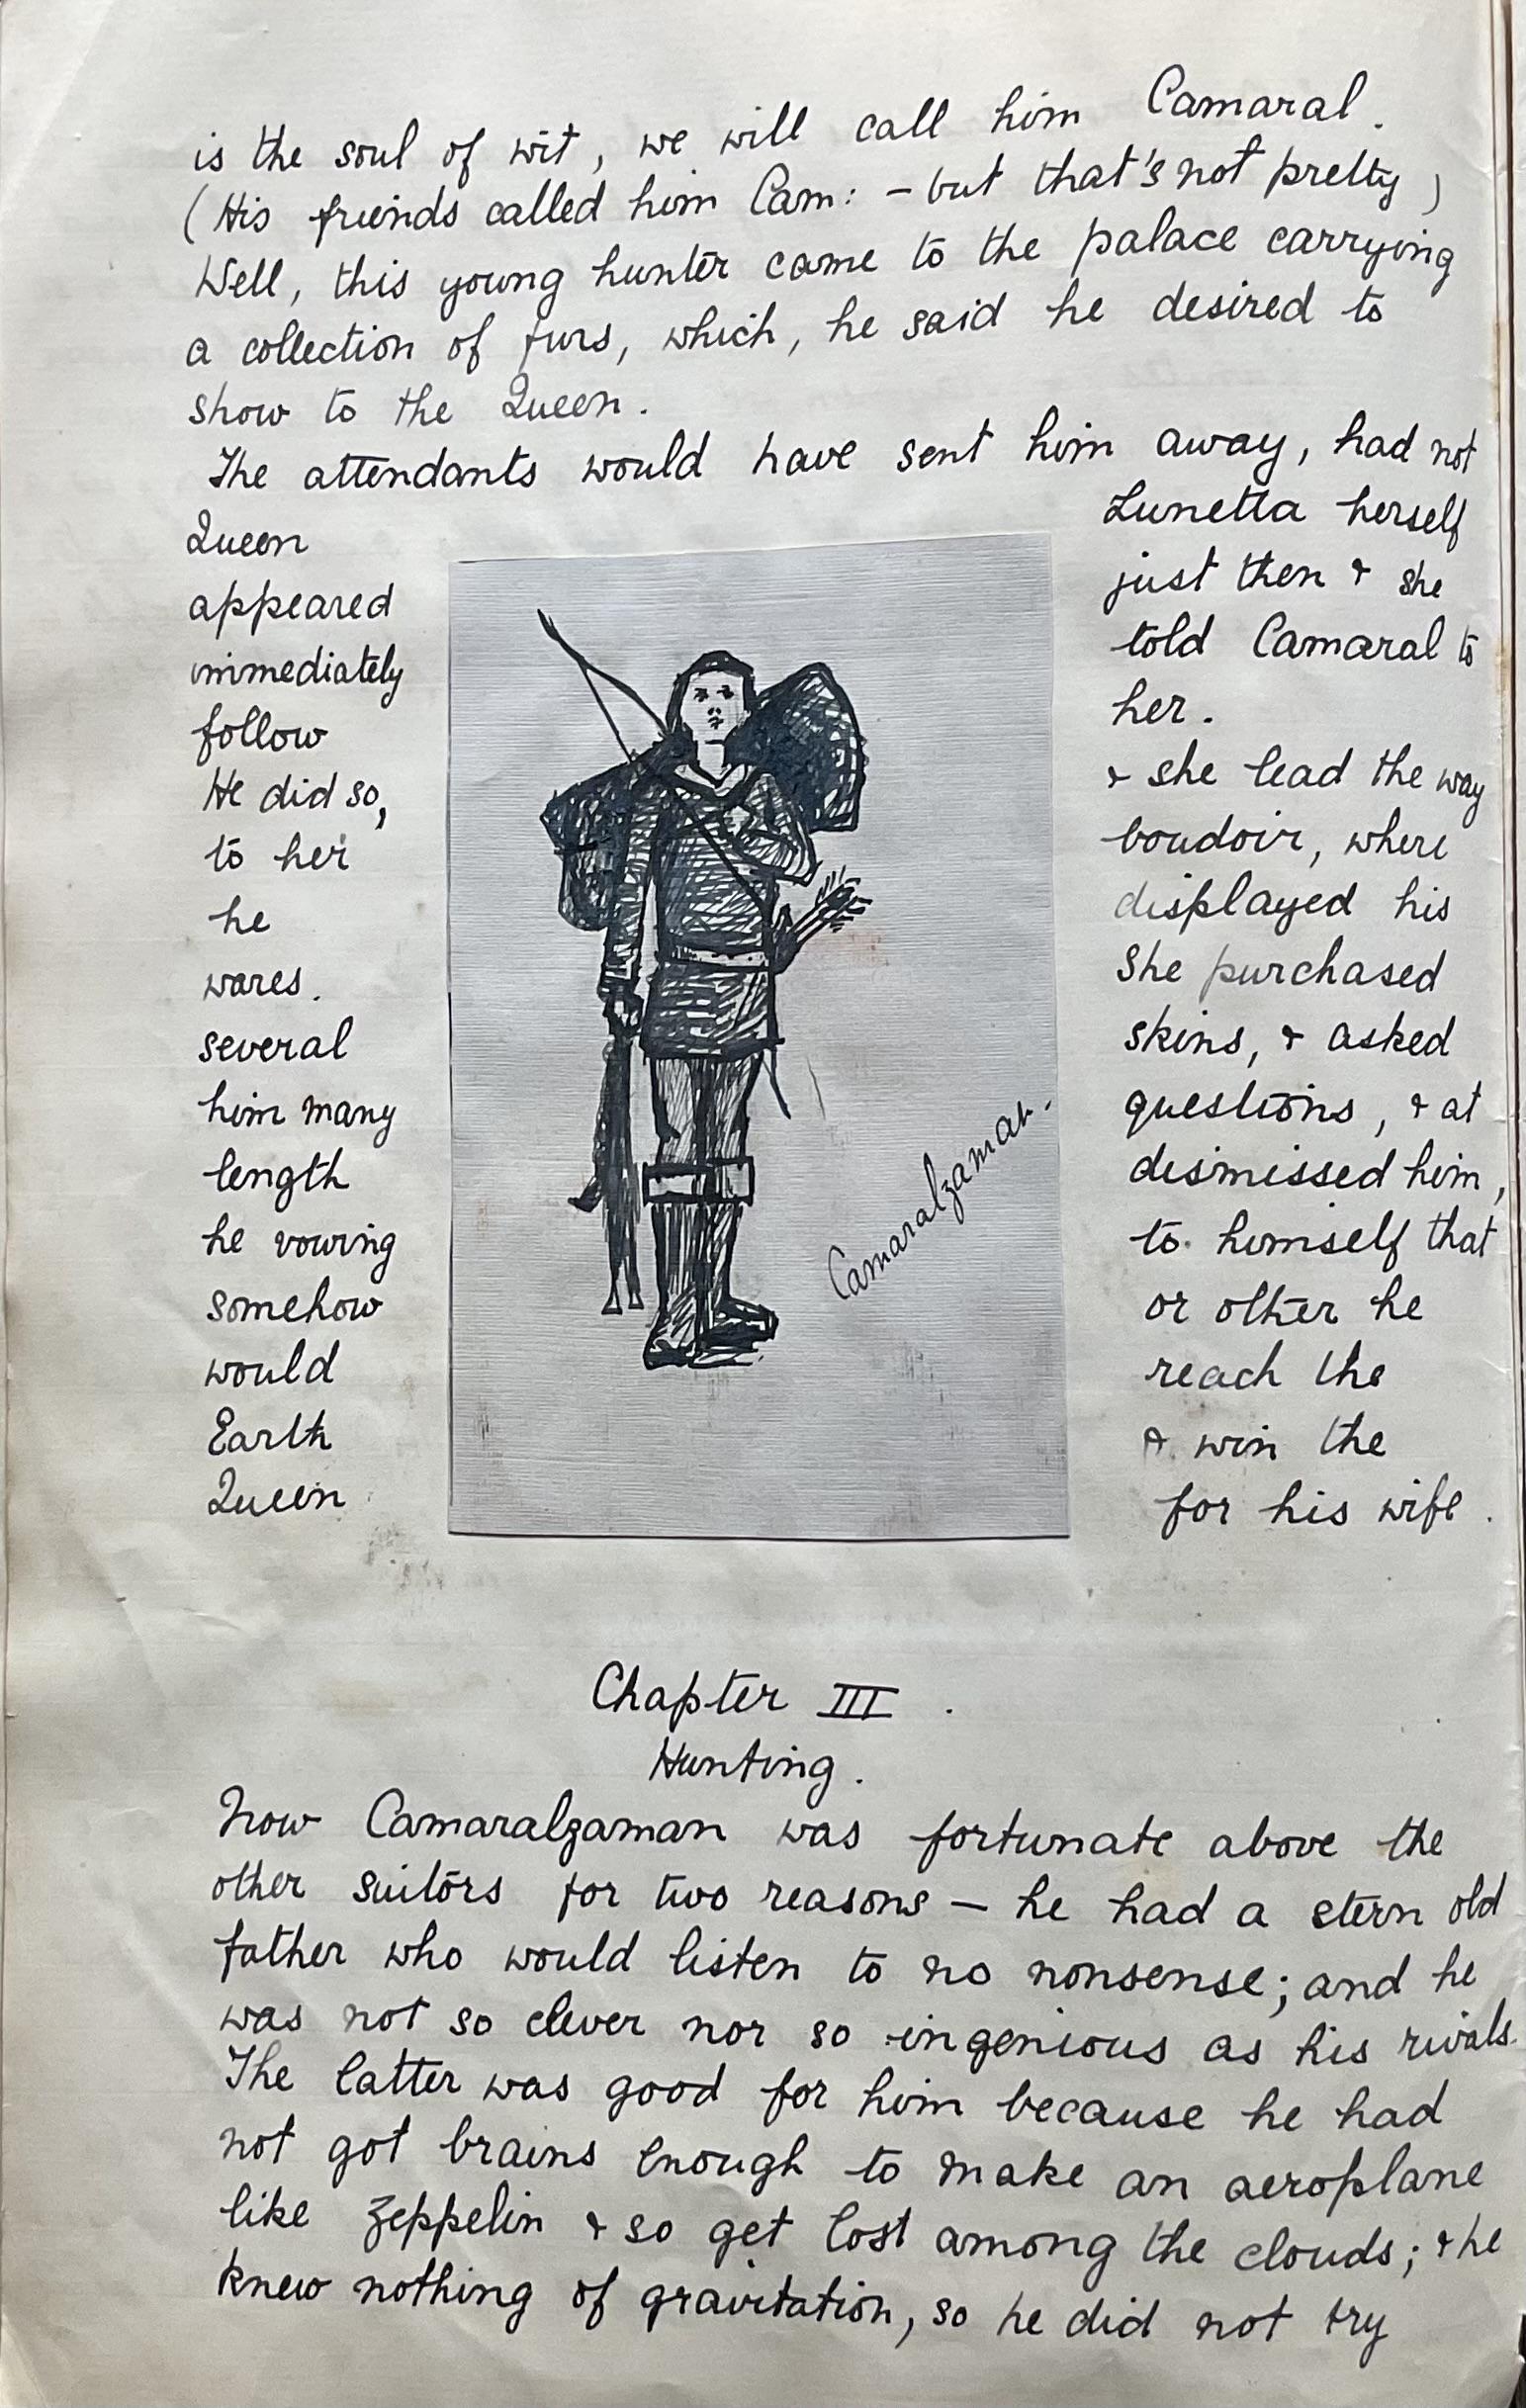 is the soul of wit, we will call him Camaral.
(His friends called him Cam: – but that's not pretty)
Well, this young hunter came to the palace carrying
a collection of furs, which, he said he desired to
show to the Queen.
The attendants would have sent him away, had not
Queen Lunetta herself
appeared just then & she
immediately told Camaral to
follow her.
He did so, & she lead the way
to her boudoir, where
he displayed his
wares. She purchased
several skins, & asked
him many questions, & at
length dismissed him,
he vowing to himself that
somehow or other he
would reach the
Earth & win the
Queen for his wife.
Camaralzaman.
Chapter III.
Hunting.
Now Camaralzaman was fortunate above the
other suitors for two reasons – he had a stern old
father who would listen to no nonsense; and he
was not so clever nor so ingenious as his rivals.
The latter was good for him because he had
not got brains enough to make an aeroplane
like Zeppelin & so get lost among the clouds; & he
knew nothing of gravitation, so he did not try